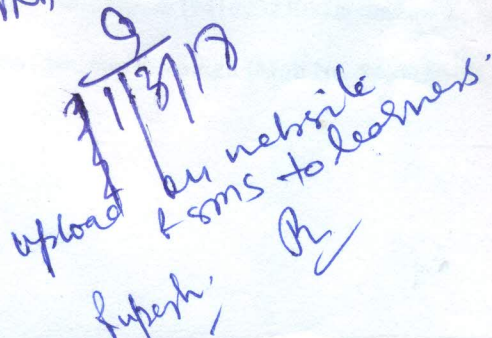 1/3/18
upload on website
& sms to learners.
Rupesh.